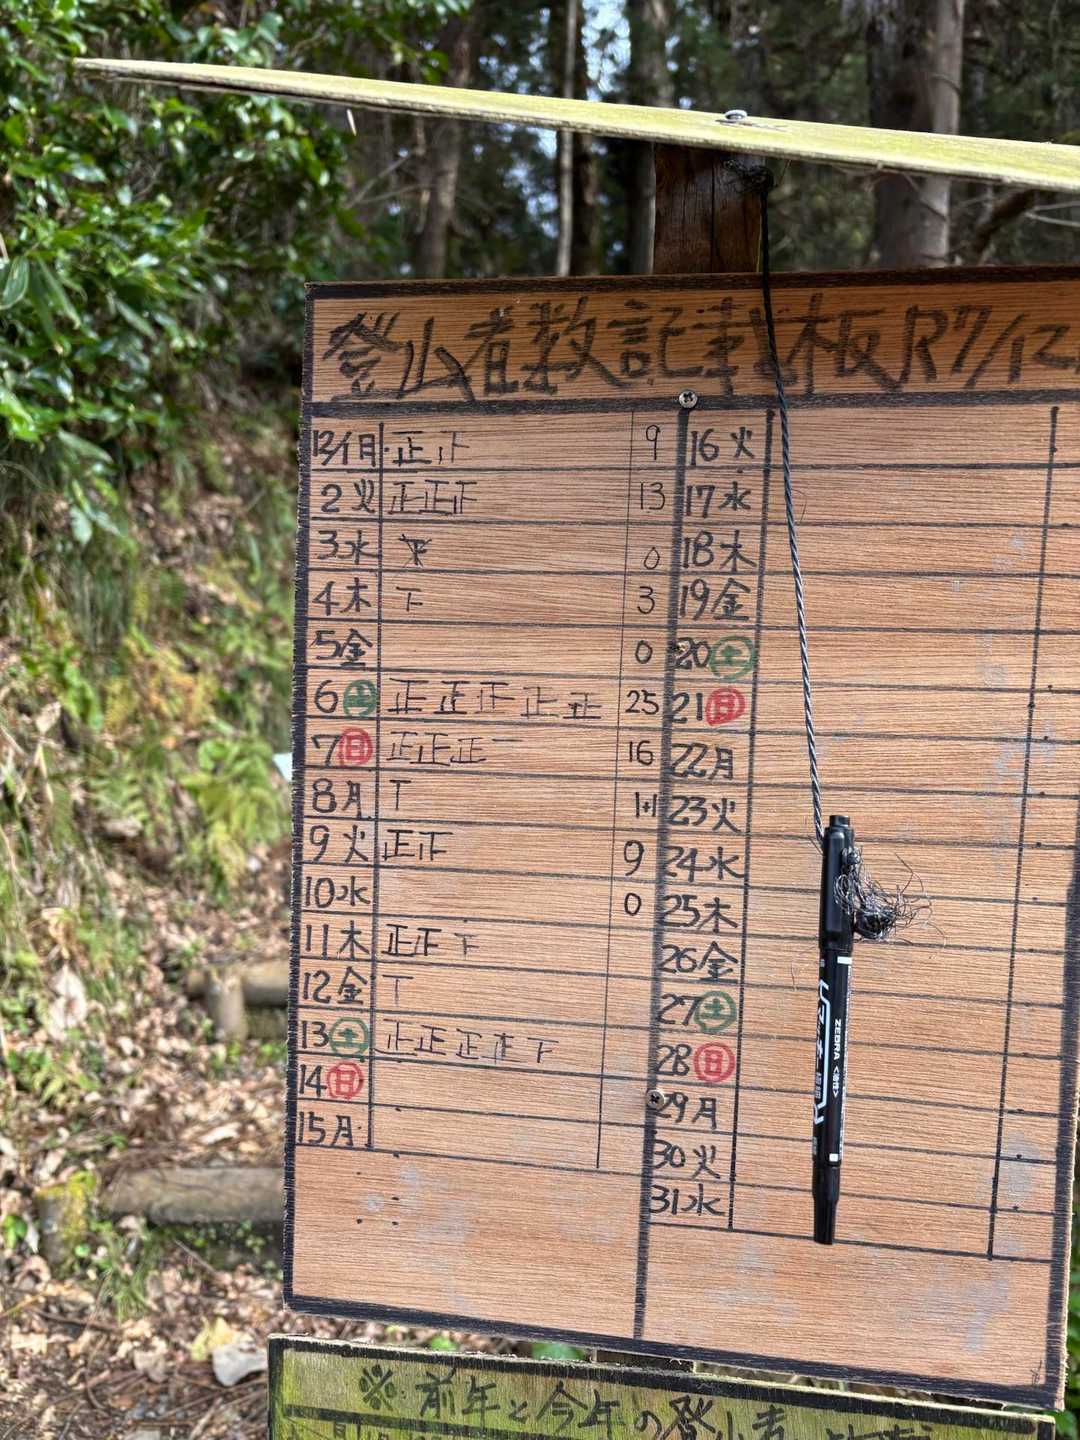 登山者数記載板 R7/12
12/1月 正下 9
2火 正正下 13
3水 0
4木 下 3
5金 0
6土 正正正正正 25
7日 正正正一 16
8月 T 1+1
9火 正正 9
10水 0
11木 正正下
12金 T
13土 正正正正下
14日
15月
16火
17水
18木
19金
20土
21日
22月
23火
24水
25木
26金
27土
28日
29月
30火
31水
ZEBRA <油性>
マッキー 極細
※前年と今年の登山者